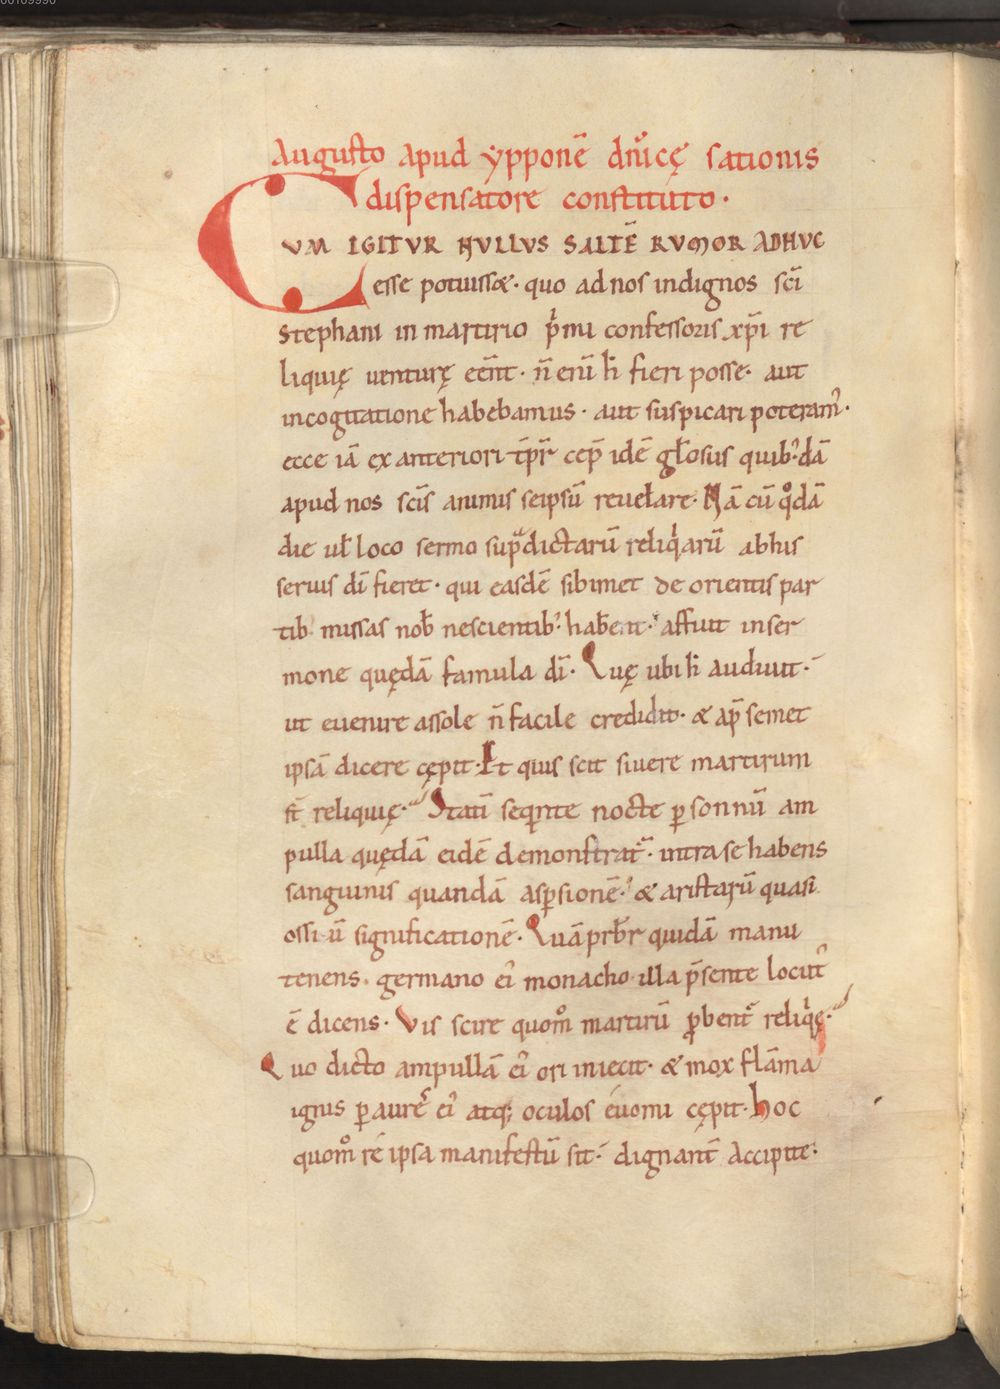 00109990
Augusto apud ypponē dn̄icę sationis
dispensatore constituto·
CUM IGITUR NULLUS SALTĒ RUMOR ADHUC
esse potuisset· quo ad nos indignos sc̄i
Stephani in martirio p̍mi confessoris xp̄i re
liquię venturę eēnt· n̄ enī h̄ fieri posse· aut
incogitatione habebamus· aut suspicari poteram᷒·
ecce iā ex anteriori tp̄r̄ cep̄ idē gl̄osus quib᷒dā
apud nos sc̄is animis seipsū revel̄are· Nā cū qͦdā
die ul̄ loco sermo supᵃdictarū reliqⁱarū abhis
servis dī fieret· qui easdē sibimet de orientis par
tib᷒ missas nob̄ nescientib᷒ hab̄ent· affuit inser
mone quędā famula dī· Quę ubi h̄ audivit·
ut evenire assole n̄ facile credidit· & ap̄ semet
ipsā dicere cępit· Et quis scit si vere martirum
st̄ reliquię· Statī seqn̄te nocte ꝑ sonnū am
pulla quędā eidē demonstrat᷒· intra se habens
sanguinis quandā asꝑsionē· & aristarū quasi
ossiū significationē· Quā prb̄r quidā manu
tenens· germano ei᷒ monacho illa p̄sente locut᷒
ē dicens· Vis scire quomͦ martirū ꝓbent᷒ reliqⁱę·
Quo dicto ampullā ei᷒ ori iniecit· & mox flāma
ignis ꝑ aurē ei᷒ atq; oculos evomi cępit· hoc
quomͦ re ipsa manifestū sit· dignant̄ accipite·